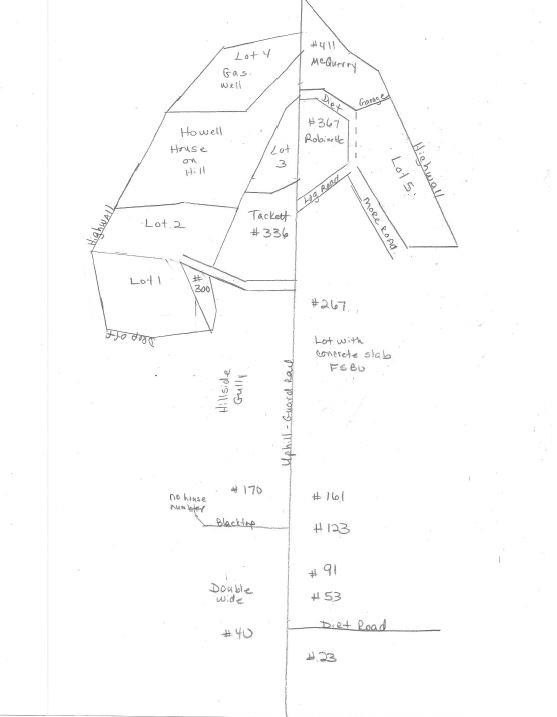 Lot 4
Gas
well
#411
McQuerry
Dirt
Garage
#367
Robinette
Howell
House
on
Hill
Lot
3
Highwall
Lot 5
Log Road
More Road
Tackett
#336
Lot 2
Highwall
Lot 1
#
300
Drop off
#267
Lot with
concrete slab
FSBO
Hillside
Gully
Uphill - Guard Rail
#170
no house
number
Blacktop
#161
#123
#91
#53
Double
wide
#40
Dirt Road
#23